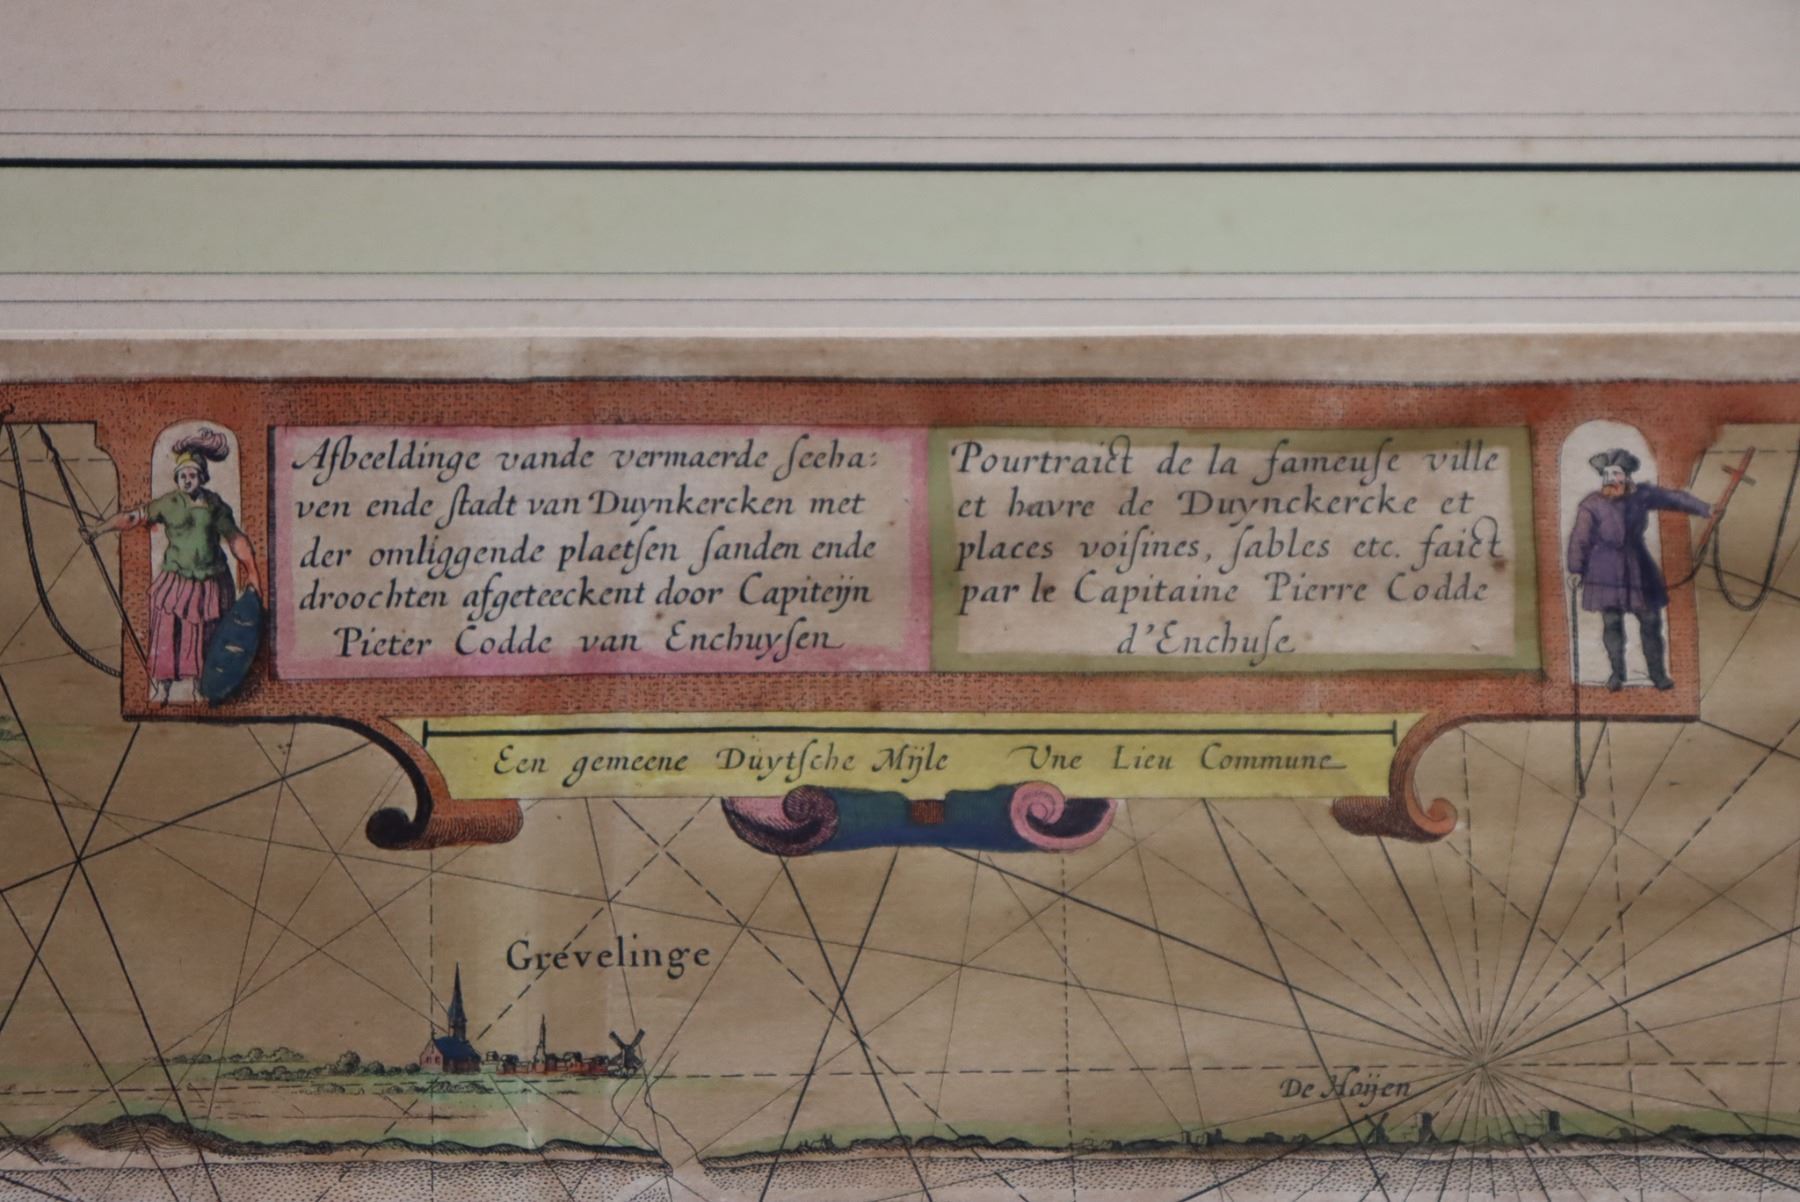 Afbeeldinge vande vermaerde seeha:
ven ende stadt van Duynkercken met
der omliggende plaetsen sanden ende
droochten afgeteeckent door Capiteijn
Pieter Codde van Enchuysen
Pourtraict de la fameuse ville
et havre de Duynckercke et
places voisines, sables etc. faict
par le Capitaine Pierre Codde
d'Enchuse
Een gemeene Duytsche Mijle Une Lieu Commune
Grevelinge
De Hoijen